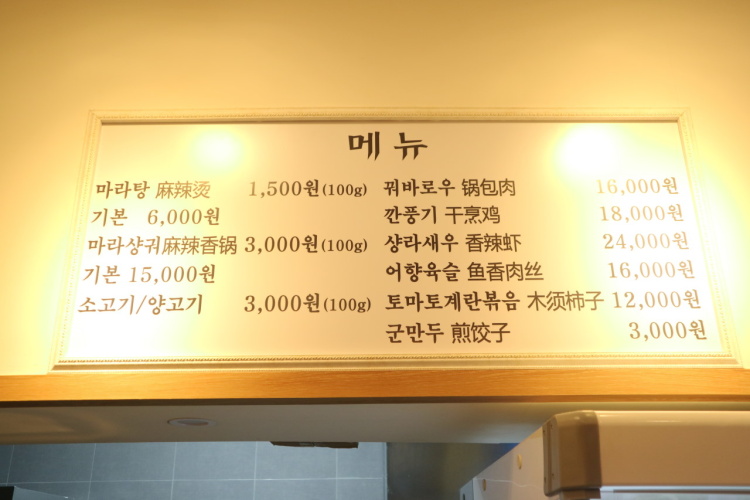 메뉴
마라탕 麻辣烫 1,500원(100g)
기본 6,000원
마라샹궈麻辣香锅 3,000원(100g)
기본 15,000원
소고기/양고기 3,000원(100g)
꿔바로우 锅包肉 16,000원
깐풍기 干烹鸡 18,000원
샹라새우 香辣虾 24,000원
어향육슬 鱼香肉丝 16,000원
토마토계란볶음 木须柿子 12,000원
군만두 煎饺子 3,000원